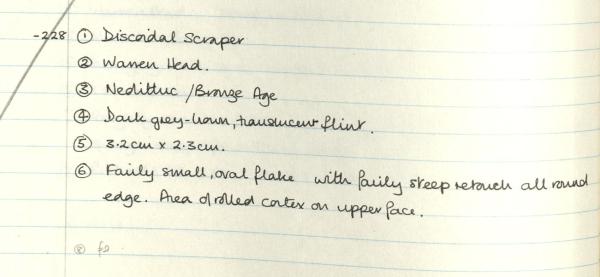 -228 ① Discoidal Scraper
② Warren Head.
③ Neolithic / Bronze Age
④ Dark grey-brown, translucent flint.
⑤ 3.2cm x 2.3cm.
⑥ Fairly small, oval flake with fairly steep retouch all round
edge. Area of rolled cortex on upper face.
⑧